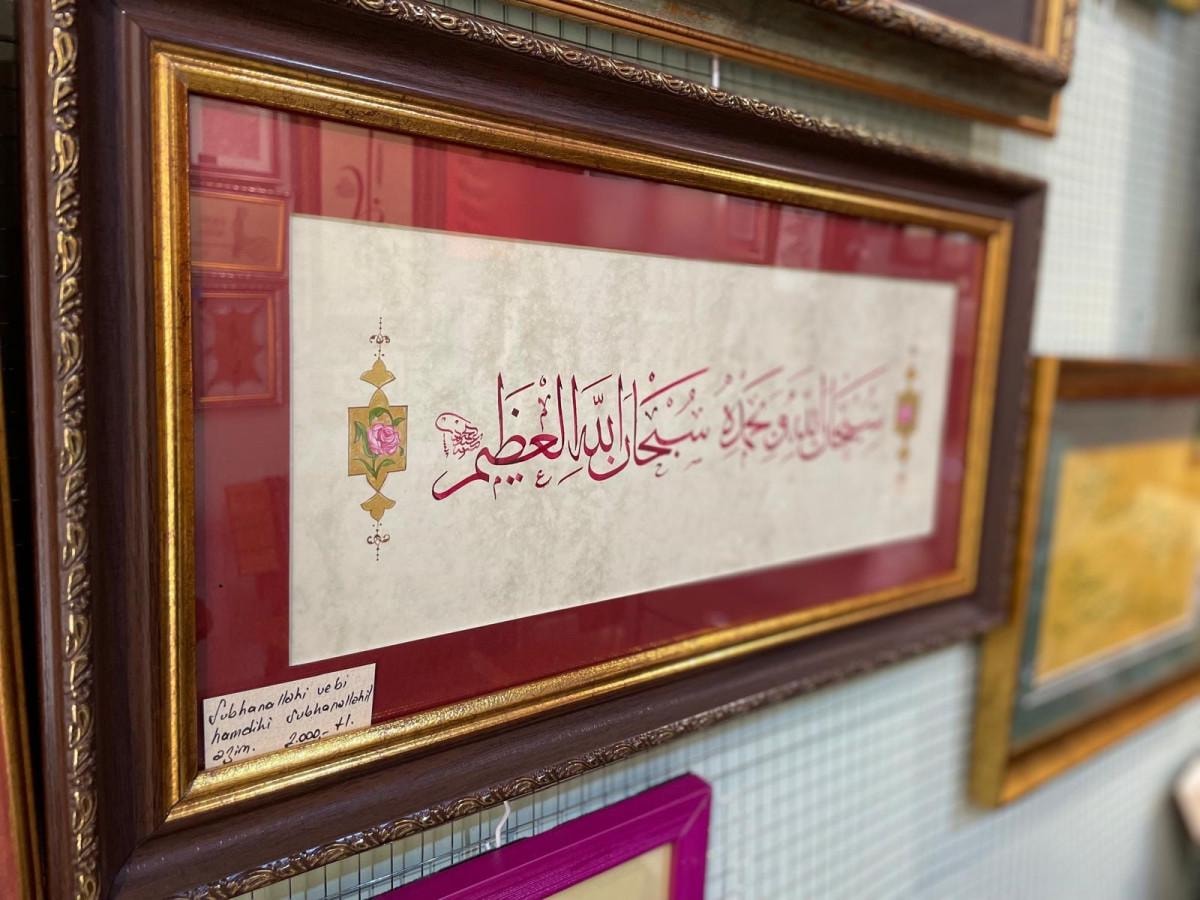 سبحان الله وبحمده سبحان الله العظيم
Subhanallahi vebi
hamdihi Subhanallahil
azim. 2.000.- tl.